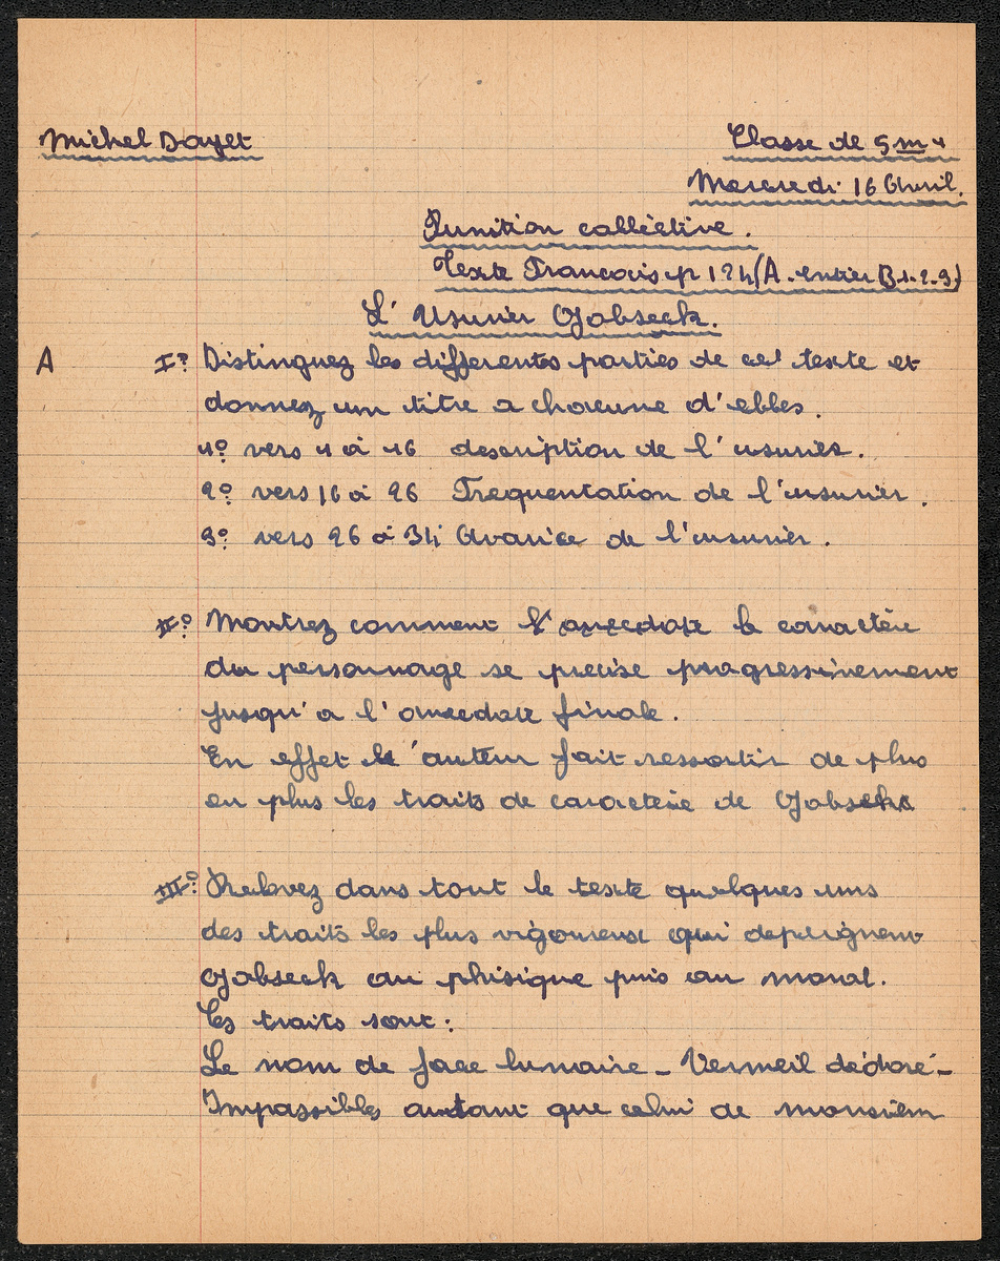 Michel Dayet
Classe de 5 m 4
Mercredi 16 Avril.
Punition collective.
Texte Francais p 124 (A. entier B 1.2.3)
L' Usurier Gobseck.
A I° Distinguez les differentes parties de cet texte et
donnez un titre a chacune d'elles.
1° vers 1 à 16 description de l'usurier.
2° vers 16 à 26 Frequentation de l'usurier.
3° vers 26 à 34 Avarice de l'usurier.
II° Montrez comment l'anecdote le caractère
du personnage se precise progressivement
jusqu'a l'anecdote finale.
En effet l'auteur fait ressortir de plus
en plus les traits de caractère de Gobseck
III° Relevez dans tout le texte quelques uns
des traits les plus vigoureux qui depeignent
Gobseck au phisique puis au moral.
Ces traits sont:
Le nom de face lunaire - Vermeil dédoré -
Impassibles autant que celui de monsieur